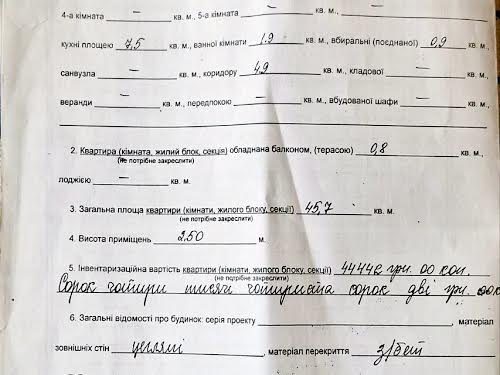 4-а кімната — кв. м., 5-а кімната — кв. м.,
кухні площею 7,5 кв. м., ванної кімнати 1.9 кв. м., вбиральні (поєднаної) 0,9 кв. м.,
санвузла — кв. м., коридору 4.9 кв. м., кладової — кв. м.,
веранди — кв. м., передпокою — кв. м., вбудованої шафи — кв. м.,
2. Квартира (кімната, жилий блок, секція) обладнана балконом, (терасою) 0,8 кв. м.,
(не потрібне закреслити)
лоджією — кв. м.
3. Загальна площа квартири (кімнати, жилого блоку, секції) 45,7 кв. м.
(не потрібне закреслити)
4. Висота приміщень 2.50 м.
5. Інвентаризаційна вартість квартири (кімнати, жилого блоку, секції) 44442 грн. 00 коп.
(не потрібне закреслити)
Сорок чотири тисячі чотириста сорок дві грн. 00к
6. Загальні відомості про будинок: серія проекту , матеріал
зовнішніх стін цегляні , матеріал перекриття з/бет